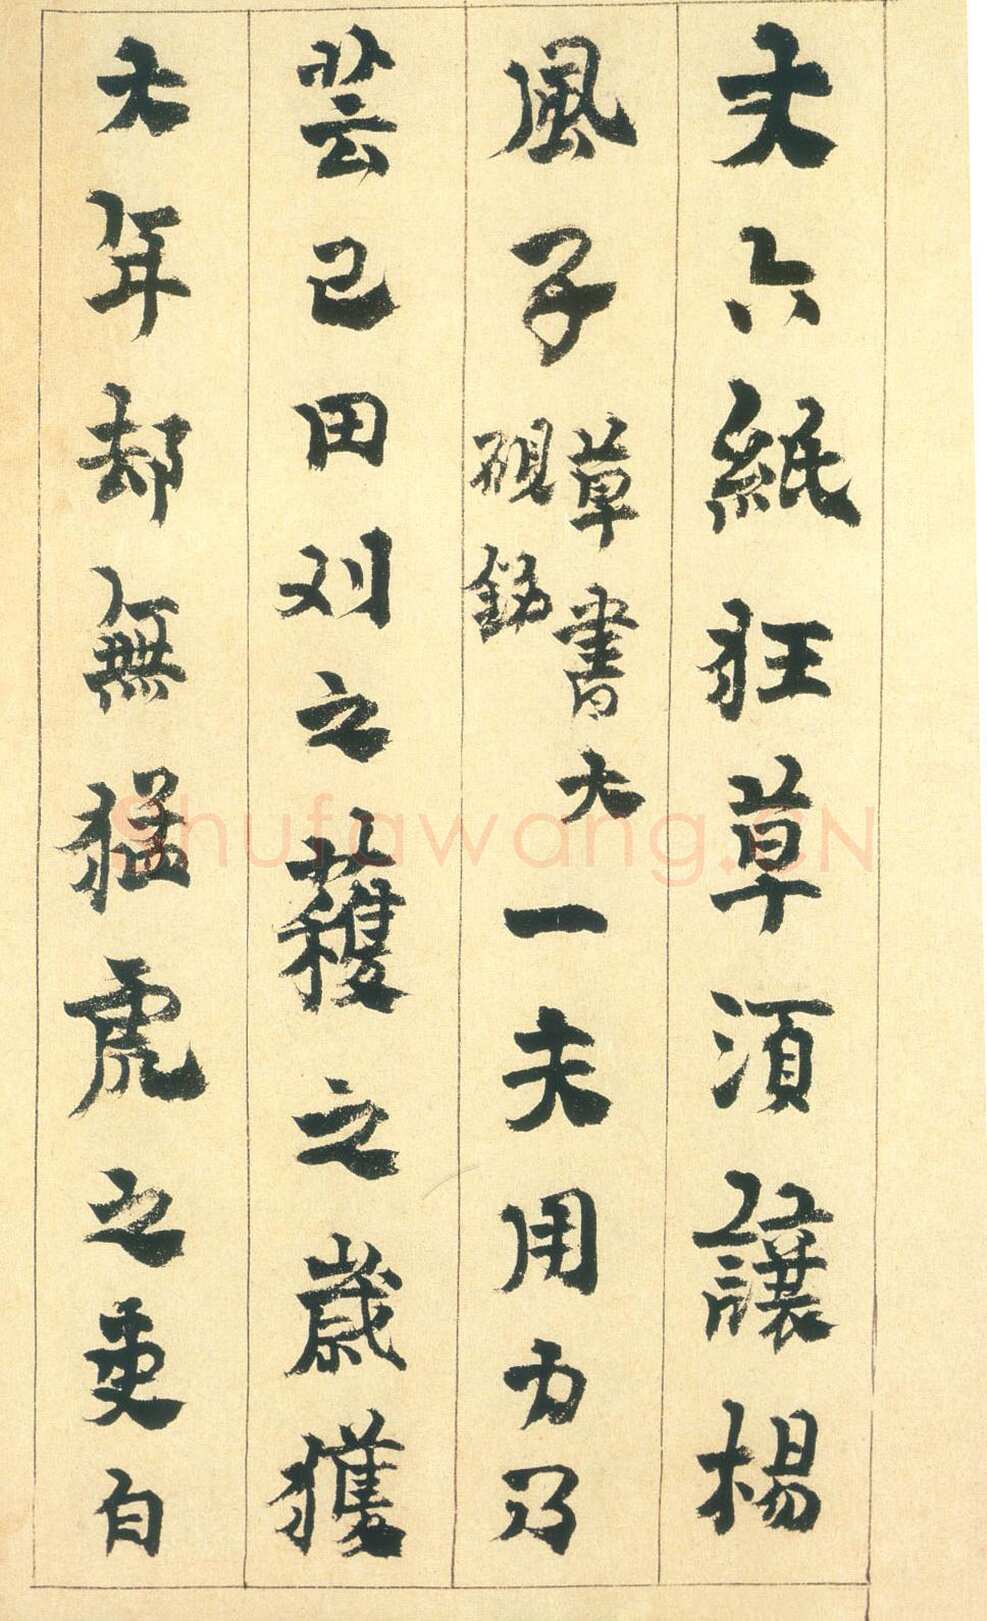 丈六紙狂草須讓楊
風子
草書大
硯銘
一夫用力乃
芸己田刈之穫之歲獲
大年却無猛虎之吏白
Shufawang.CN